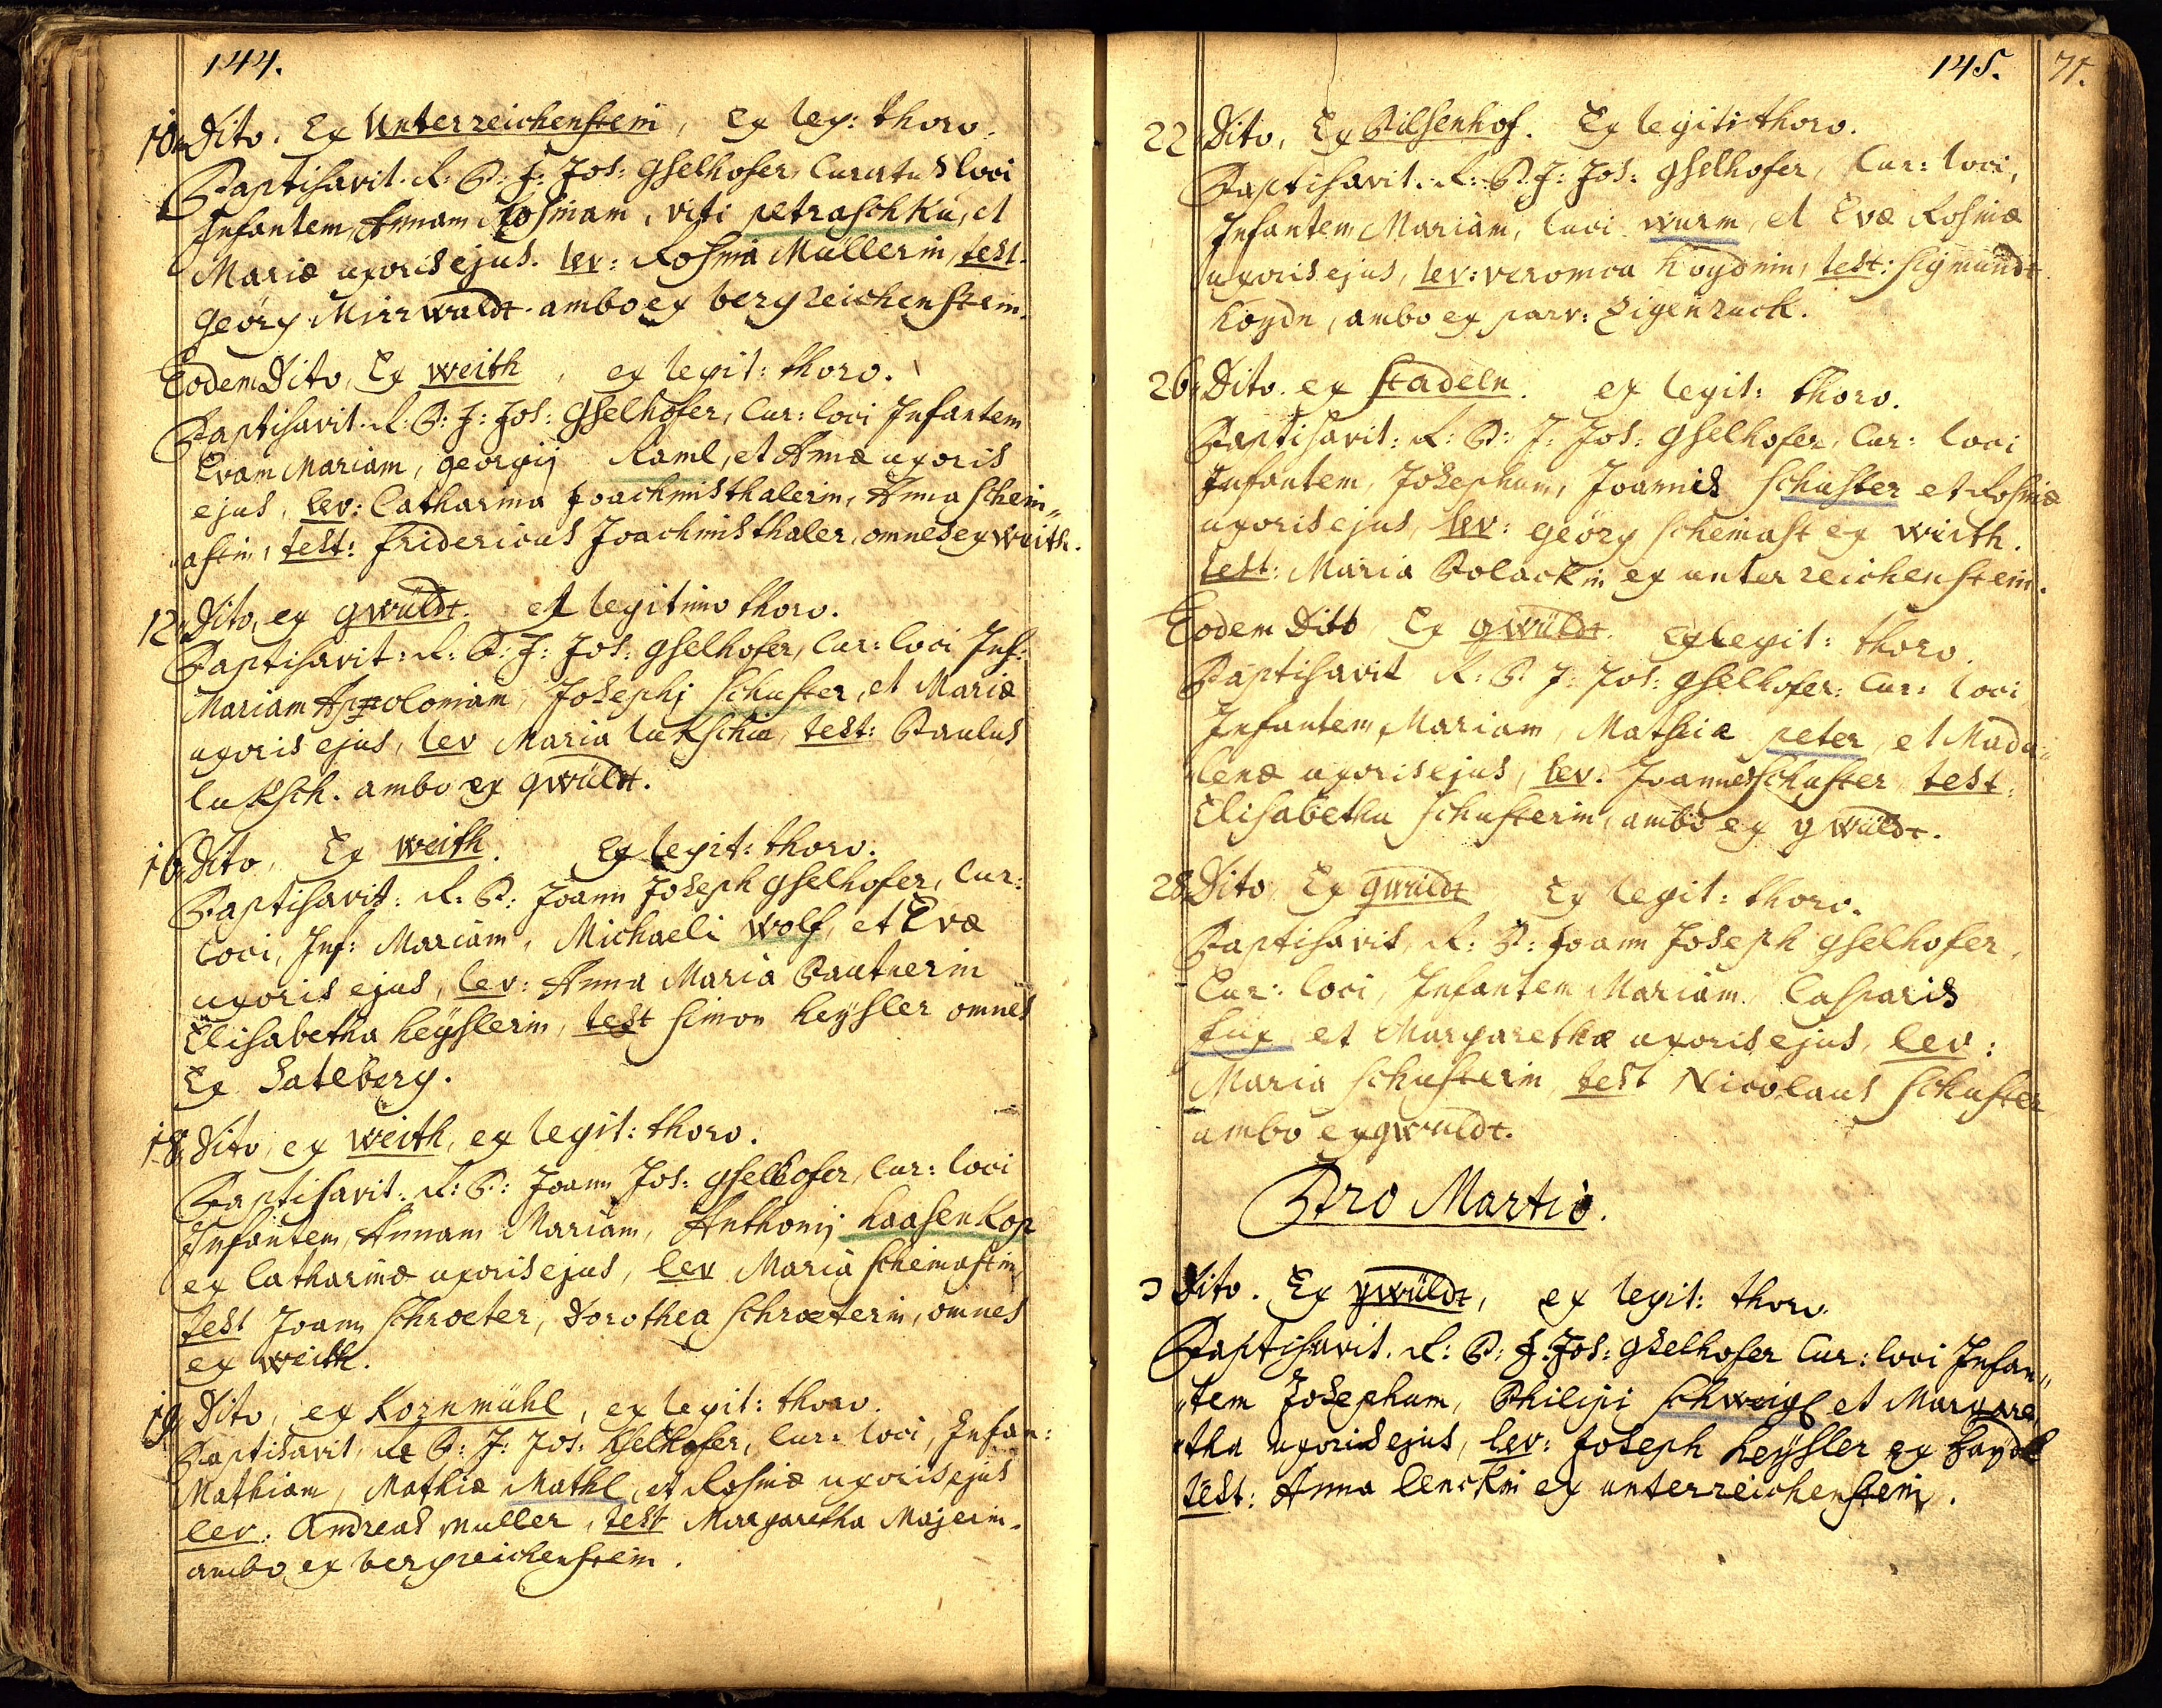 144.
10. Dito. Ex Unterreichenstein, ex leg: thoro.
Baptisavit. R: P: J: Jos: Gselhofer, Curatus loci
Infantem, Annam Rosinam, viti petraschku, et
Mariæ uxoris ejus. lev: Rosina Müllerin, test.
Geörg Mirrwaldt. ambo ex bergreichenstein.
Eodem Dito, Ex weith, ex legit: thoro.
Baptisavit. R: P: J: Jos: Gselhofer, Cur: loci Infantem
Evam Mariam, georgij Raml, et Annæ uxoris
ejus, lev: Catharina Joachmisthalerin, Anna schein„
„astin, test: fridericus Joachmisthaler, omnes ex weith.
12. Dito, ex gwüldt. ex legitimo thoro.
Baptisavit: R: P: J: Jos: gselhofer, Cur: loci Inf:
Mariam Appoloniam, Josephj schuster, et Mariæ
uxoris ejus, lev Maria lukschin, test: Paulus
luksch. ambo ex gwüldt.
16. Dito, Ex weith. Ex legit: thoro.
Baptisavit: R. P: Joann Joseph gselhofer, Cur:
loci, Inf: Mariam, Michaeli wolf, et Evæ
uxoris ejus, lev: Anna Maria Pautnerin
Elisabetha heyslerin, test simon heysler omnes
Ex Sateberg.
18. Dito, ex weith, ex legit: thoro.
Baptisavit. R: P: Joann Jos: gselhofer, Cur: loci
Infantem, Annam Mariam, Anthonij haasenkop
ex Catharinæ uxoris ejus, lev Maria scheinastin,
test Joann schroeter, Dorothea schroeterin, omnes
ex weith.
19. Dito, ex Kornmühl, ex legit: thoro.
Baptisavit, R: P: J: Jos: Gselhofer, Cur: loci, Infan:
Mathiam, Mathiæ Mathl, et Rosinæ uxoris ejus
lev: Andreas Muller, test Margaretha Majerin.
ambo ex bergreichenstein.
145. 71.
22. Dito, Ex Pilsenhof. Ex legiti thoro.
Baptisavit. R: P: J: Jos: gselhofer, Cur: loci,
Infantem Mariam, Luci wurm, et Evæ Rosinæ
uxoris ejus, lev: veronica Koydnin, test: sigmundt
Koydn, ambo ex parr: Eigenruck.
26. Dito. ex stadeln. ex legit: thoro.
Baptisavit: R: P: J: Jos: gselhofer, Cur: loci
Infantem, Josephum, Joannis schuster et Rosinæ
uxoris ejus, lev: geörg scheinast ex weith.
test: Maria Polackin ex unterreichenstein.
Eodem Dito, Ex gwüldt. Ex legit: thoro.
Baptisavit R: P: J: Jos: gselhofer: Cur: loci
Infantem, Mariam, Mathiæ peter, et Mada„
„lenæ uxoris ejus, lev. Joannes schuster, test:
Elisabetha schusterin, ambo ex gwüldt.
28. Dito, Ex gwüldt Ex legit: thoro.
Baptisavit, R: P: Joann Joseph gselhofer,
Cur: loci, Infantem Mariam, Casparis
fux, et Margarethæ uxoris ejus, lev:
Maria schusterin, test Nicolaus schuster
ambo ex gwuldt.
Pro Martio.
3 Dito. Ex gwüldt, ex legit: thoro.
Baptisavit. R: P: J: Jos: gselhofer Cur: loci Infan„
„tem Josephum, Philipi schweigl et Margare„
„tha uxoris ejus, lev: Joseph heysler ex haydl
test: Anna lenckin ex unterreichenstein.